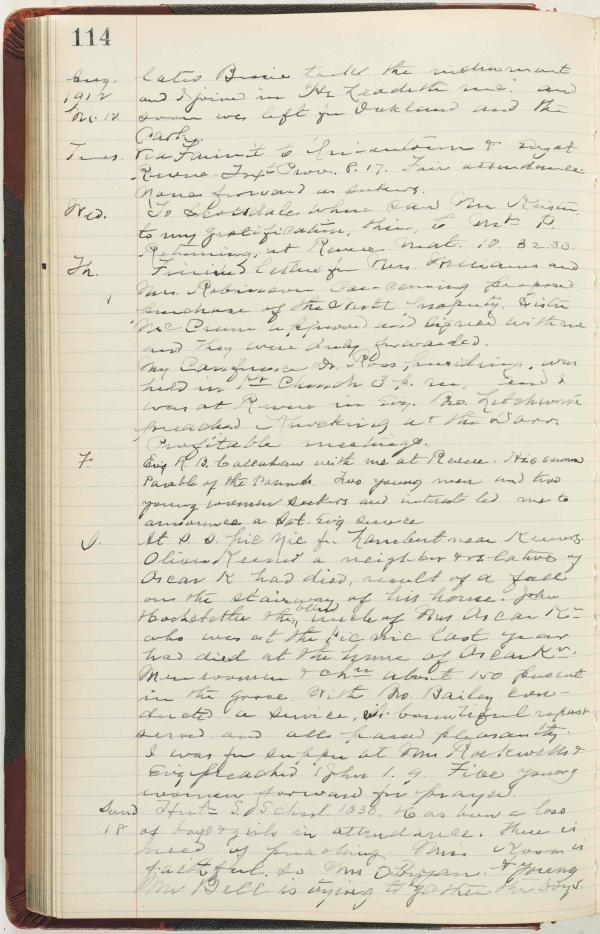 114
Aug. later Bessie took the instrument
1912 and I joined in "He Leadeth me." and
soon was left for Oakland and the
Park.
Tues. to & at
Revere Text Prov. 8.17. Fair attendance
None forward as seekers.
Wed. To Scottdale where saw Mr
to my gratification, then to Mt. P.
Returning, at Revere Mat. 10. 32.33.
Th. Finished letter for Mrs. Williams and
Mrs. Robinson Con-cerning proposed
purchase of the Property. Sister
McCrum approved and signed with me
and they were duly forwarded.
My Conference Dr. Ross presiding, was
held in Church 3 p. m. and I
was at Revere in Evg. Bro. Letchworth
preached Knocking at the Door.
Profitable meetings.
F. Evg R. B. Callahan with me at Revere. His sermon
Parable of the Pounds. Two young men and two
young women seekers and interest led me to
announce a Sat. Evg service
S. At S. S. Pic Nic for Lambert near
Oliver a neighbor & relative of
Oscar K had died, result of a fall
on the stairway of his house. John
Hochstetler the blind uncle of Mrs Oscar K
who was at the Pic nic last year
had died at the home of Oscar K.
Men women & chn about 150 present
in the grove. With Bro. Bailey con-
ducted a service. A bountiful repast
served and all passed pleasantly.
I was for supper at Mrs Rockwells &
Evg preached 1 John 1. 9. Five young
women forward for prayer.
Sund S. School 1030. Has been a loss
18 of boys & girls in attendance. There is
need of preaching. Miss is
faithful, so Mrs O'Bryan. & young
Mr Bell is trying to gather the boys.